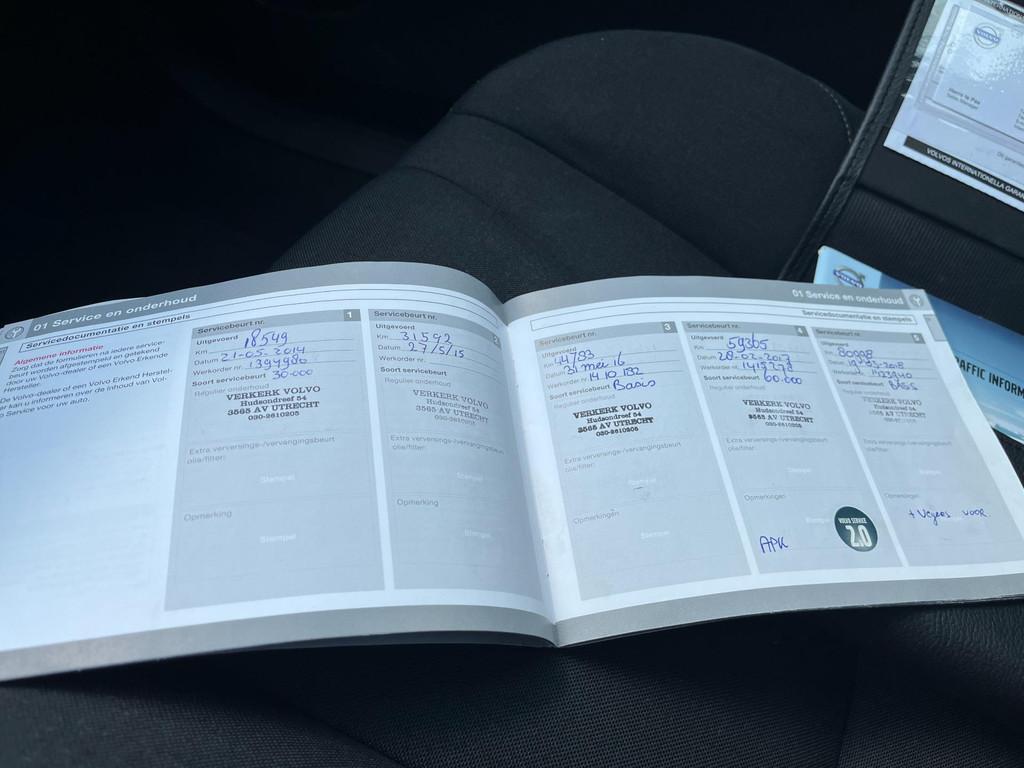 01 Service en onderhoud
Servicedocumentatie en stempels
Algemene informatie
Zorg dat de formulieren na iedere service-
beurt worden afgestempeld en getekend
door uw Volvo-dealer of een Volvo Erkende
Hersteller.
De Volvo-dealer of een Volvo Erkend Herstel-
ler kan u informeren over de inhoud van Vol-
vo Service voor uw auto.
Servicebeurt nr. 1
Uitgevoerd
Km 18549
Datum 21-05-2014
Werkorder nr.
Soort servicebeurt 30.000
Regulier onderhoud
VERKERK VOLVO
Hudsondreef 54
3565 AV UTRECHT
030-2610205
Extra verversings-/vervangingsbeurt
olie/filter:
Stempel
Opmerking
Stempel
Servicebeurt nr. 2
Uitgevoerd
Km 31592
Datum 27/5/15
Werkorder nr.
Soort servicebeurt
Regulier onderhoud
VERKERK VOLVO
Hudsondreef 54
3565 AV UTRECHT
030-2610205
Extra verversings-/vervangingsbeurt
olie/filter:
Stempel
Opmerking
Stempel
01 Service en onderhoud
Servicedocumentatie en stempels
Servicebeurt nr. 3
Uitgevoerd
Km
Datum 31 mei 16
Werkorder nr. 14.10.132
Soort servicebeurt Basis
Regulier onderhoud
VERKERK VOLVO
Hudsondreef 54
3565 AV UTRECHT
030-2610205
Extra verversings-/vervangingsbeurt
olie/filter:
Stempel
Opmerkingen
Stempel
Servicebeurt nr. 4
Uitgevoerd
Km 59365
Datum 28-02-2017
Werkorder nr.
Soort servicebeurt 60.000
Regulier onderhoud
VERKERK VOLVO
Hudsondreef 54
3565 AV UTRECHT
030-2610205
Extra verversings-/vervangingsbeurt
olie/filter:
Stempel
Opmerkingen
Stempel
APK
VOLVO SERVICE
2.0
Servicebeurt nr. 5
Uitgevoerd
Km
Datum
Werkorder nr.
Soort servicebeurt
Regulier onderhoud
VERKERK VOLVO
Hudsondreef 54
3565 AV UTRECHT
Extra verversings-/vervangingsbeurt
olie/filter:
Stempel
Opmerkingen
VOOR
Stempel
VOLVO
VOLVOS INTERNATIONELLA GARAN
VOLVO
AFFIC INFORM